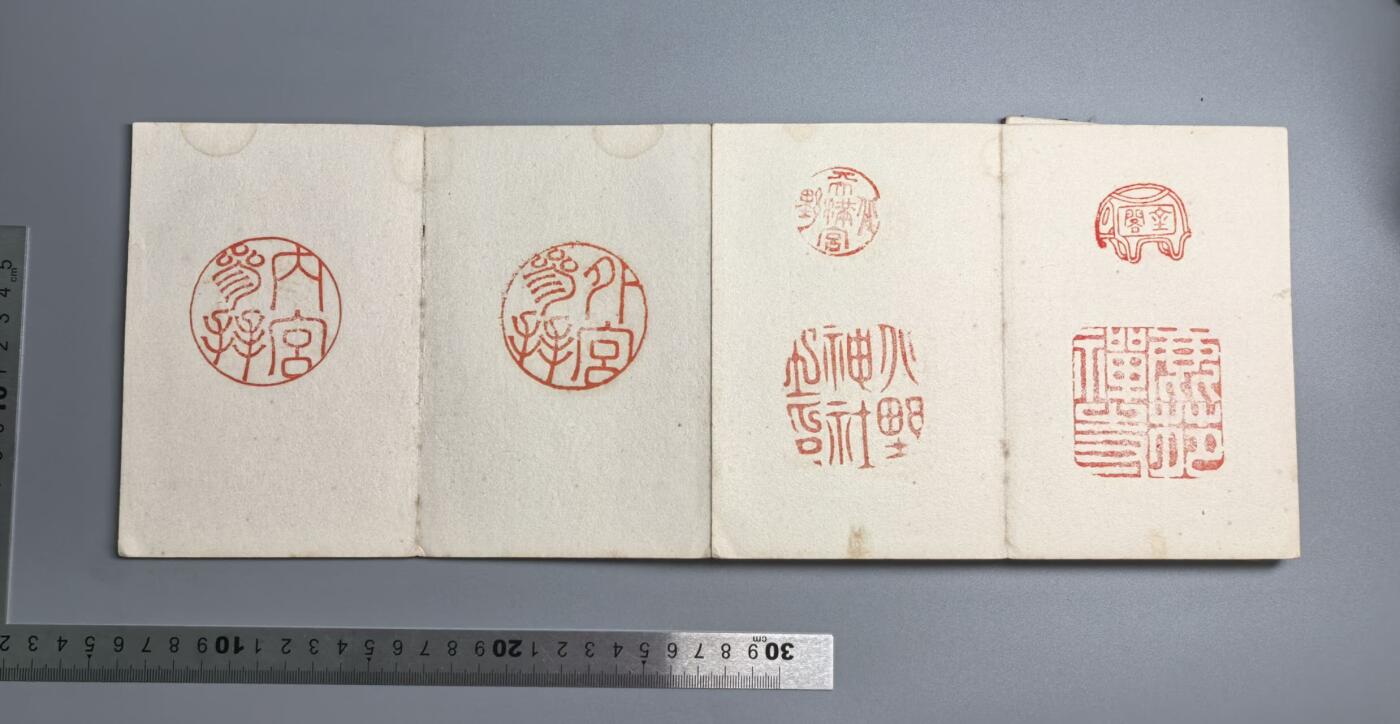 內宮
參拜
外宮
參拜
北野
天滿宮
北野
神社
之印
金閣
鹿苑
禪寺
2 3 4 5 6 7 8 9 10 1 2 3 4 5 6 7 8 9 20 1 2 3 4 5 6 7 8 9 30 cm
1 2 3 4 5 cm